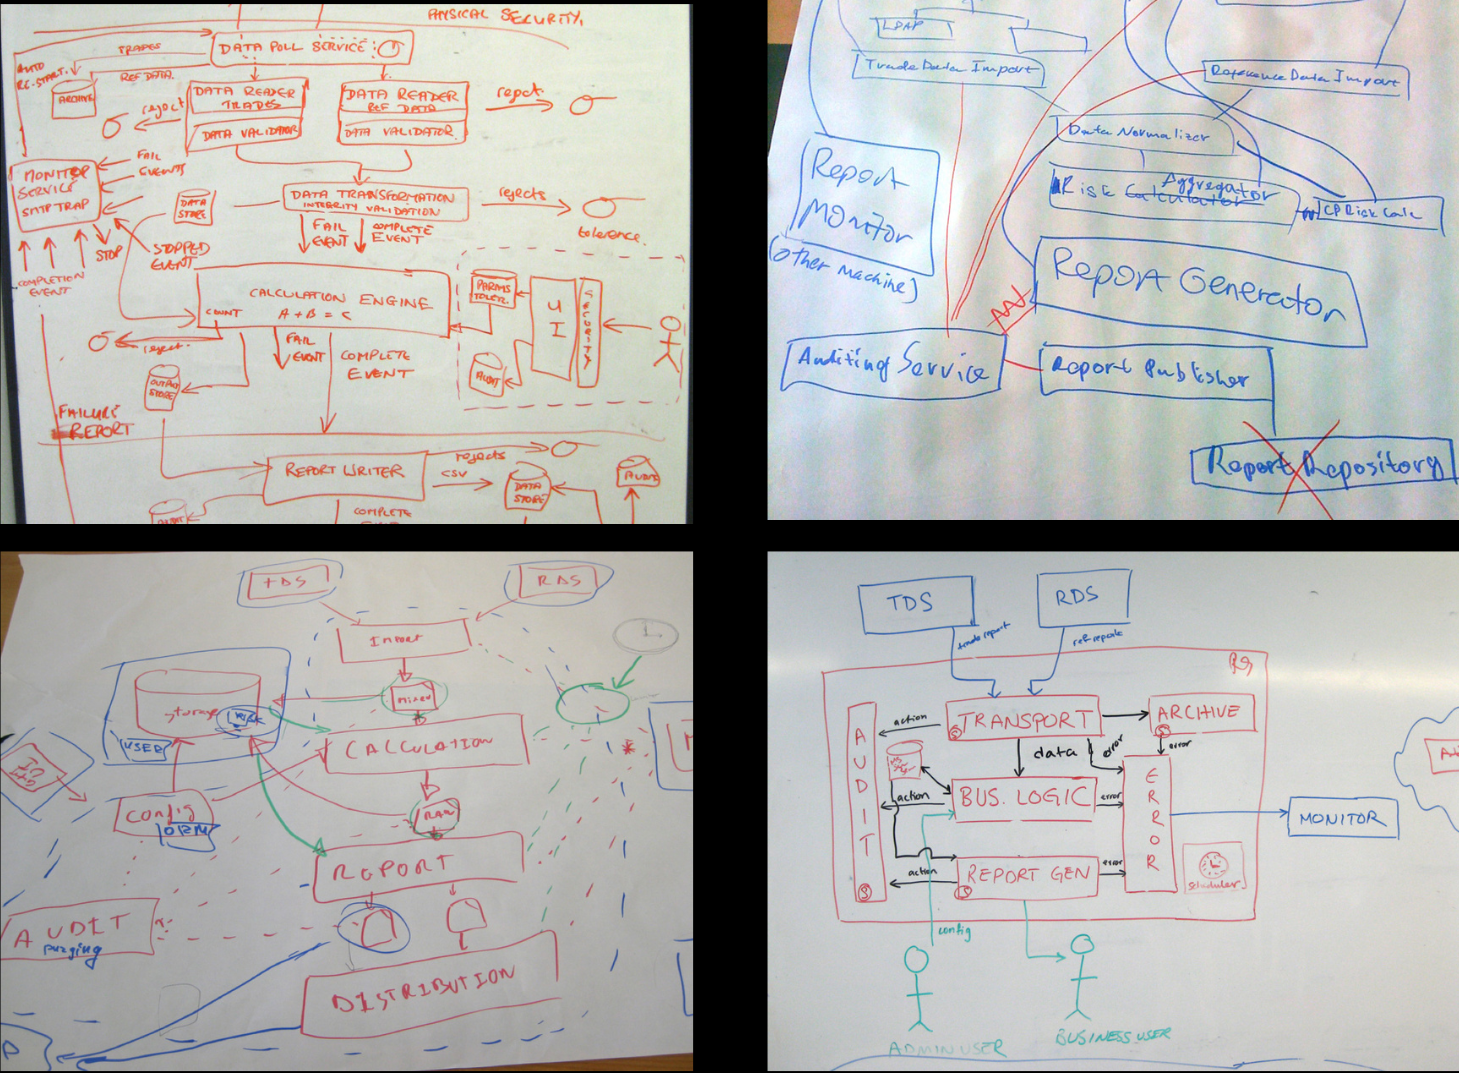 PHYSICAL SECURITY.
TRADES
DATA POLL SERVICE
AUTO
RE-START.
REF DATA.
ARCHIVE
reject
DATA READER
TRADES
DATA VALIDATOR
DATA READER
REF DATA
DATA VALIDATOR
reject.
MONITOR
SERVICE
SMTP TRAP
FAIL
EVENTS
DATA
STORE
DATA TRANSFORMATION
INTEGRITY VALIDATION
rejects
tolerence.
FAIL
EVENT
COMPLETE
EVENT
STOP
STOPPED
EVENT
COMPLETION
EVENT
CALCULATION ENGINE
A + B = C
COUNT
PARAMS
TOLER.
UI
SECURITY
AUDIT
reject.
FAIL
EVENT
COMPLETE
EVENT
OUTPUT
STORE
FAILURE
REPORT
REPORT WRITER
rejects
CSV
DATA
STORE
AUDIT
COMPLETE
LDAP
Trade Data Import
Reference Data Import
Data Normalizer
Report
Monitor
(other machine)
Aggregator
Risk Calculator
CP Risk Calc
Report Generator
Auditing Service
Report Publisher
Report Repository
TDS
RDS
Import
storage
USER
MIXED
CALCULATION
Config
ORM
RAW
REPORT
AUDIT
purging
DISTRIBUTION
TDS
RDS
trade report
ref report
TRANSPORT
ARCHIVE
AUDIT
action
data
error
error
BUS. LOGIC
action
error
ERROR
MONITOR
REPORT GEN
action
error
scheduler
config
ADMIN USER
BUSINESS USER